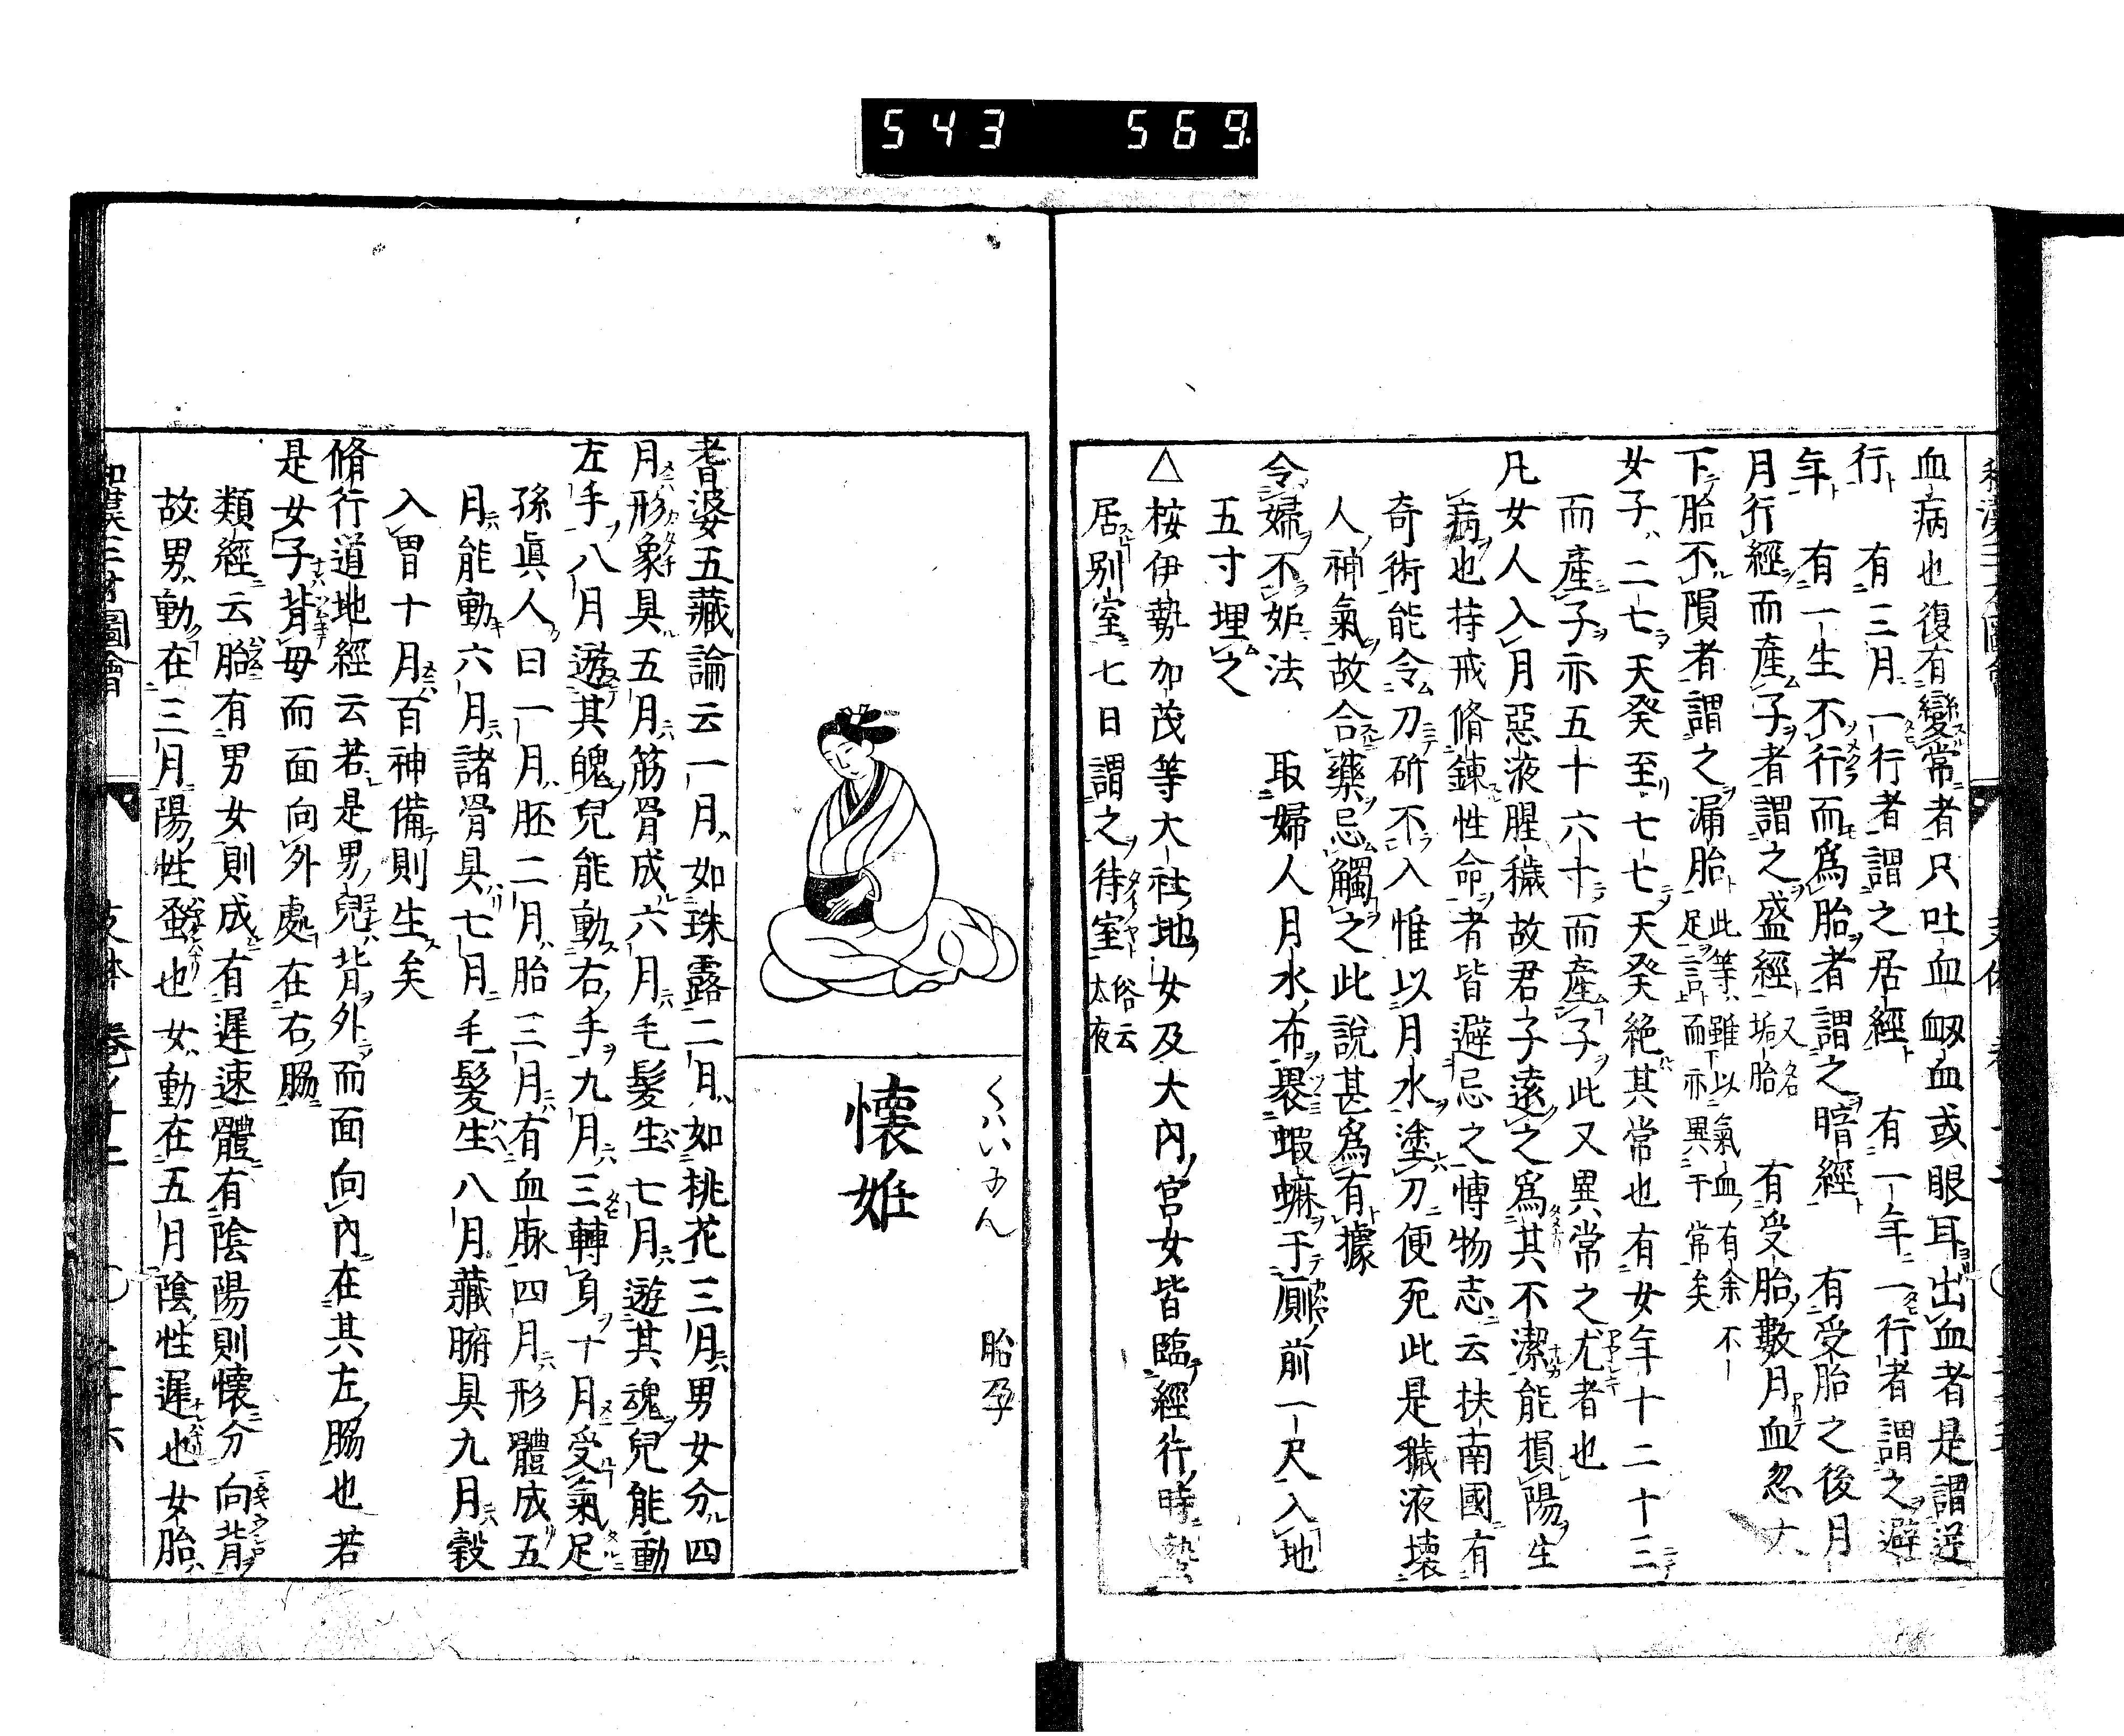 543 569
血病也復有變常者只吐血衂血或眼耳出血者是謂逆
行 有三月一行者謂之居經 有一年一行者謂之避
年 有一生不行而爲胎者謂之暗經 有受胎之後月
月行經而產子者謂之盛經又名垢胎 有受胎數月血忽大
下胎不隕者謂之漏胎此等雖以氣血有余不足言而亦異于常矣
女子二七天癸至七七天癸絶其常也有女年十二十三
而產子亦五十六十而產子此又異常之尤者也
凡女人入月惡液腥穢故君子遠之爲其不潔能損陽生
病也持戒脩鍊性命者皆避忌之博物志云扶南國有
奇術能令刀斫不入惟以月水塗刀便死此是穢液壞
人神氣故合藥忌觸之此說甚爲有據
令婦不妬法 取婦人月水布褁蝦蟆于厠前一尺入地
五寸埋之
△桉伊勢加茂等大社地女及大內宮女皆臨經行時蟄
居別室七日謂之待室俗云太夜
くハいにん
懷妊
胎孕
耆婆五藏論云一月如珠露二月如桃花三月男女分四
月形象具五月筋骨成六月毛髮生七月遊其魂兒能動
左手八月遊其魄兒能動右手九月三轉身十月受氣足
孫眞人曰一月胚二月胎三月有血脉四月形體成五
月能動六月諸骨具七月毛髮生八月藏腑具九月穀
入胃十月百神備則生矣
脩行道地經云若是男兒背外而面向內在其左脇也若
是女子背母而面向外處在右脇
類經云胎有男女則成有遲速體有陰陽則懷分向背
故男動在三月陽性蚤也女動在五月陰性遲也女胎
和漢三才圖會 支體 卷ノ十二 ○ 二十六